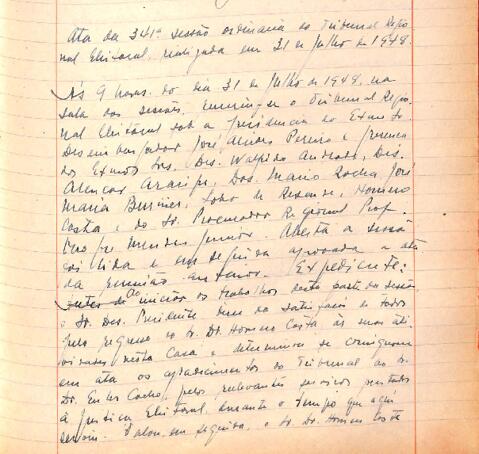 Ata da 341ª sessão ordinária do Tribunal Regio-
nal Eleitoral, realizada em 31 de Julho de 1948.
Às 9 horas do dia 31 de Julho de 1948, na
sala das sessões, reuniu-se o Tribunal Regio-
nal Eleitoral sob a presidencia do Exmo. Sr.
Desembargador José Alcides Pereira e presença
dos Exmos. Srs. Des. Walfrido Andrade, Des.
Alencar Araripe, Drs. Mario Rocha, José
Maria Burnier, Lobo de Resende, Homero
Costa e do Sr. Procurador Regional Prof.
Onofre Mendes Junior. Aberta a sessão
foi lida e em seguida aprovada a ata
da reunião anterior. Expediente:
Antes de iniciar os trabalhos desta parte da sessão
o Sr. Des. Presidente deu satisfação a todos
pelo regresso do Sr. Dr. Homero Costa às suas ati-
vidades nesta Casa e determinou se consignasse
em ata os agradecimentos do Tribunal ao Sr.
Dr. Coelho, pelos relevantes serviços prestados
à Justiça Eleitoral durante o tempo que aqui
serviu. Falou, em seguida, o Sr. Dr. Homero Costa